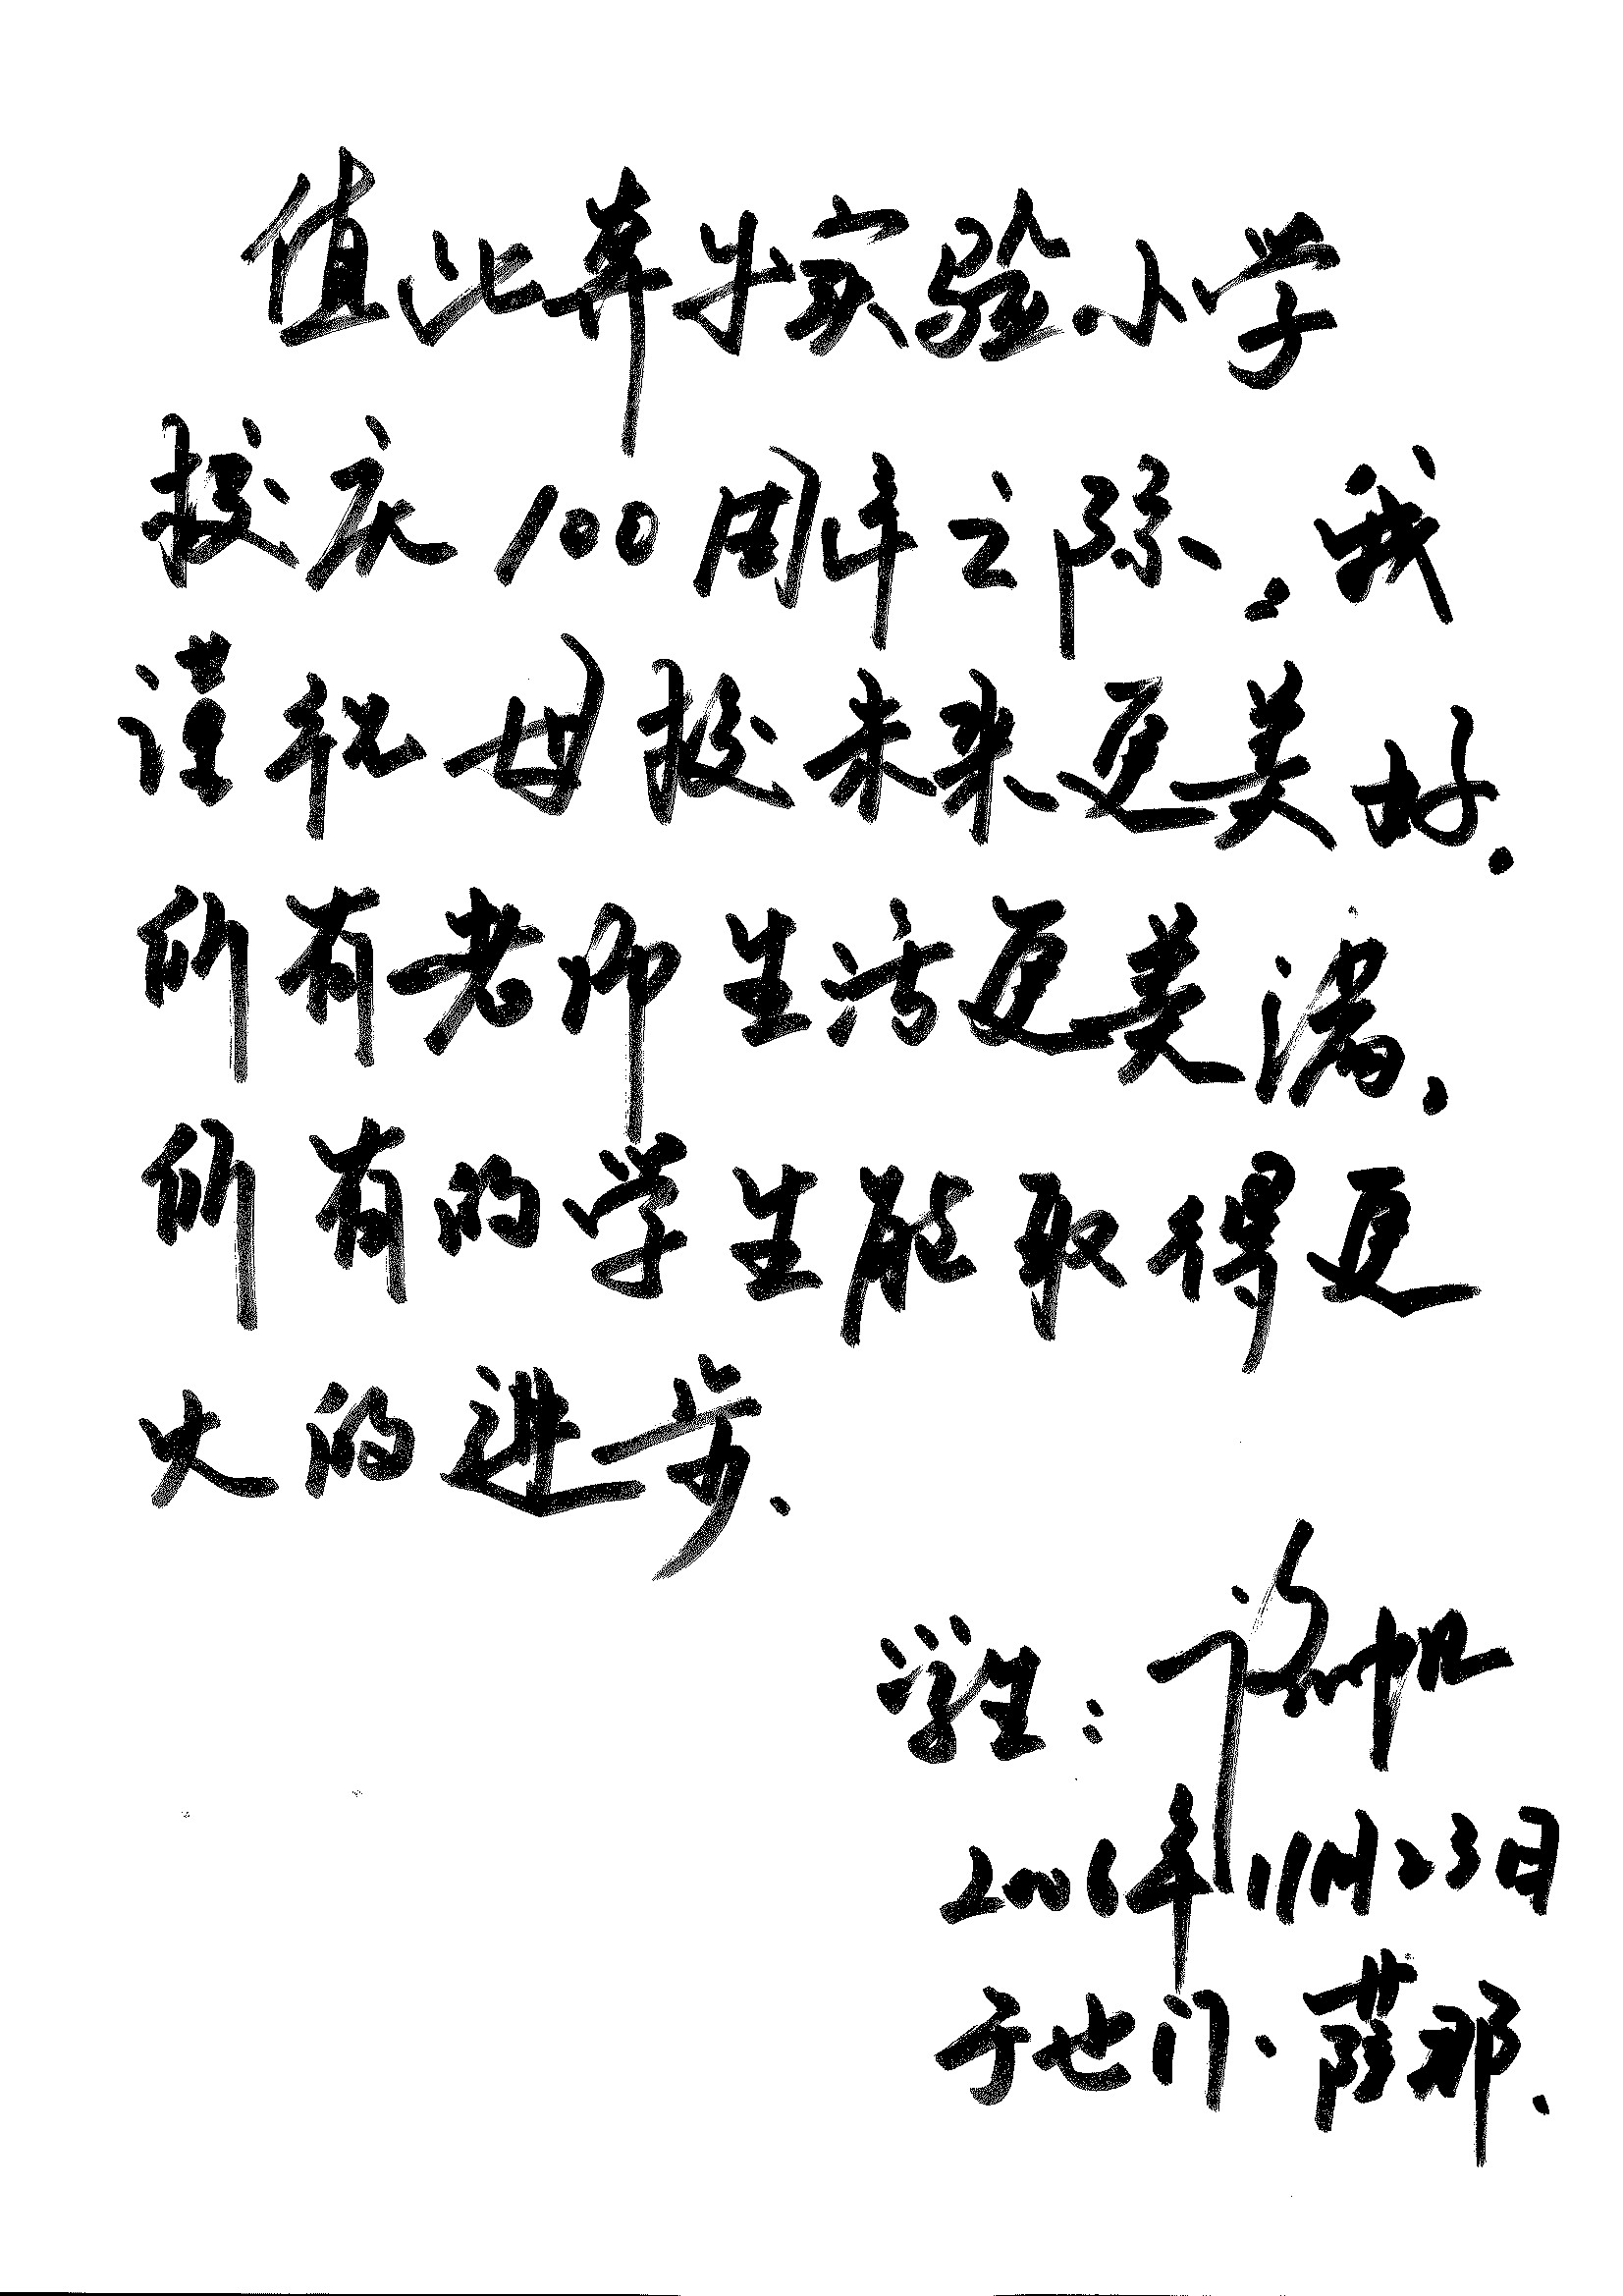 值此奔牛实验小学
校庆100周年之际，我
谨祝母校未来更美好．
所有老师生活更美满、
所有的学生能取得更
大的进步．
学生：许帆
2006年11月23日
于也门·萨那．